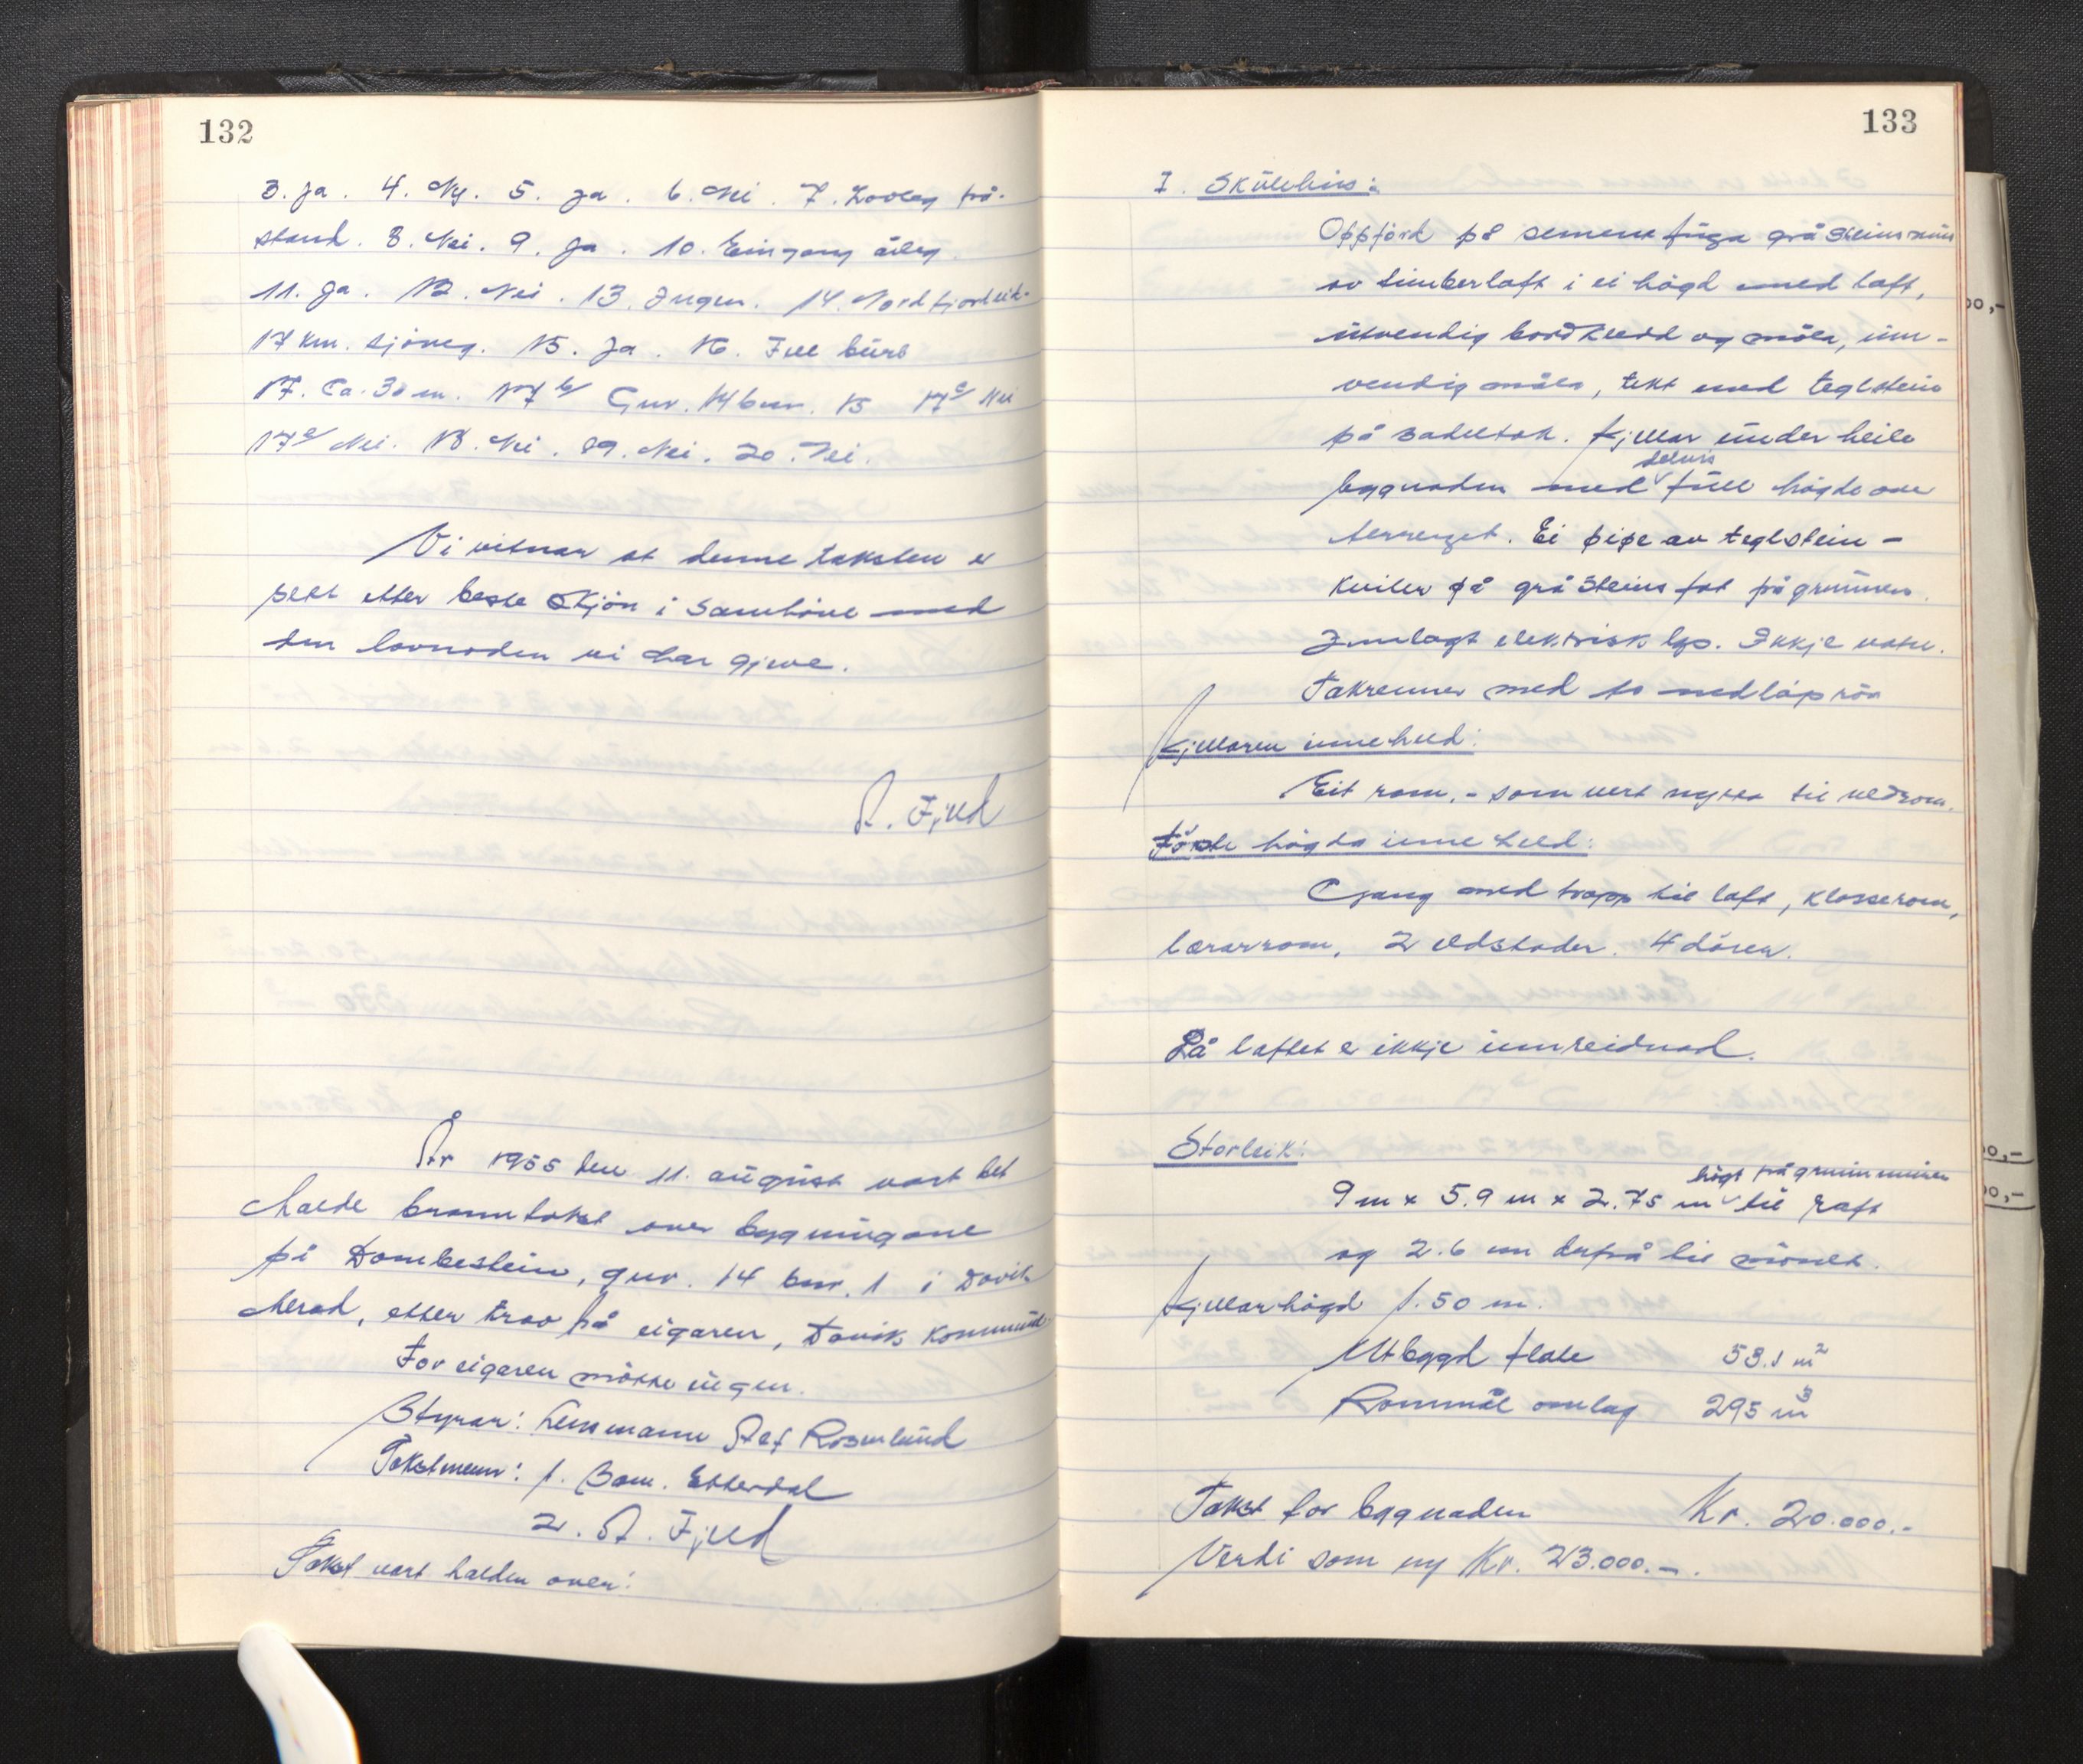 132
3. Ja. 4. Nei. 5. Ja. 6. Nei. 7. Lovleg frå-
stand. 8. Nei. 9. Ja. 10. Eingong årleg
11. Ja. 12. Nei. 13. Ingen. 14. Nordfjordeid-
17 km. sjöveg. 15. Ja. 16. Ill burt
17. Ca. 30 m. 17 b/ Gnr. 14 bnr. 15 17 c/ Nei
17 e/ Nei. 18. Nei. 19. Nei. 20. Nei.
Vi vitnar at denne taksten er
sett etter beste skjön i samhöve med
den lovnaden vi har gjeve.
A. Fjeld
År 1955 den 11. august vart det
halde branntakst over bygningane
på Dombestein, gnr. 14 bnr. 1 i Davik
herad, etter krav frå eigaren, Davik kommune
For eigaren mötte ingen.
Styrar: Lensmann Alf Rosenlund
Takstmenn: 1. Bam. Endal
2. A. Fjeld
Takst vart halden over:
133
I. Skulehus:
Oppförd på sement fuga gråsteinsmur
av timberlaft i ei högd med loft,
utvendig bordkledd og måla, inn-
vendig måla, tekt med teglstein
på sadeltak. Kjellar under heile
bygnaden med delvis full högde over
terrenget. Ei pipe av teglstein -
kviler på gråsteins fot frå grunnen.
Innlagt elektrisk lys. Ikkje vatn.
Takrenner med to nedlöpsrör
Kjellaren inneheld:
Eit rom, - som vert nytta til vedrom.
Förste högda inneheld:
Gang med trapp til loft, klasserom,
lærarrom, 2 eldstader. 4 dörer.
På loftet er ikkje innreidnad.
Storleik:
9 m x 5.9 m x 2.75 m högt frå grunnmuren til raft
og 2.6 m derfrå til mönet.
Kjellarhögd 1.50 m.
Utbygd flate 53.1 m²
Rommål omlag 295 m³
Takst for bygnaden Kr. 20.000.-
Verdi som ny Kr. 23.000.-.
00,-
00,-
00,-